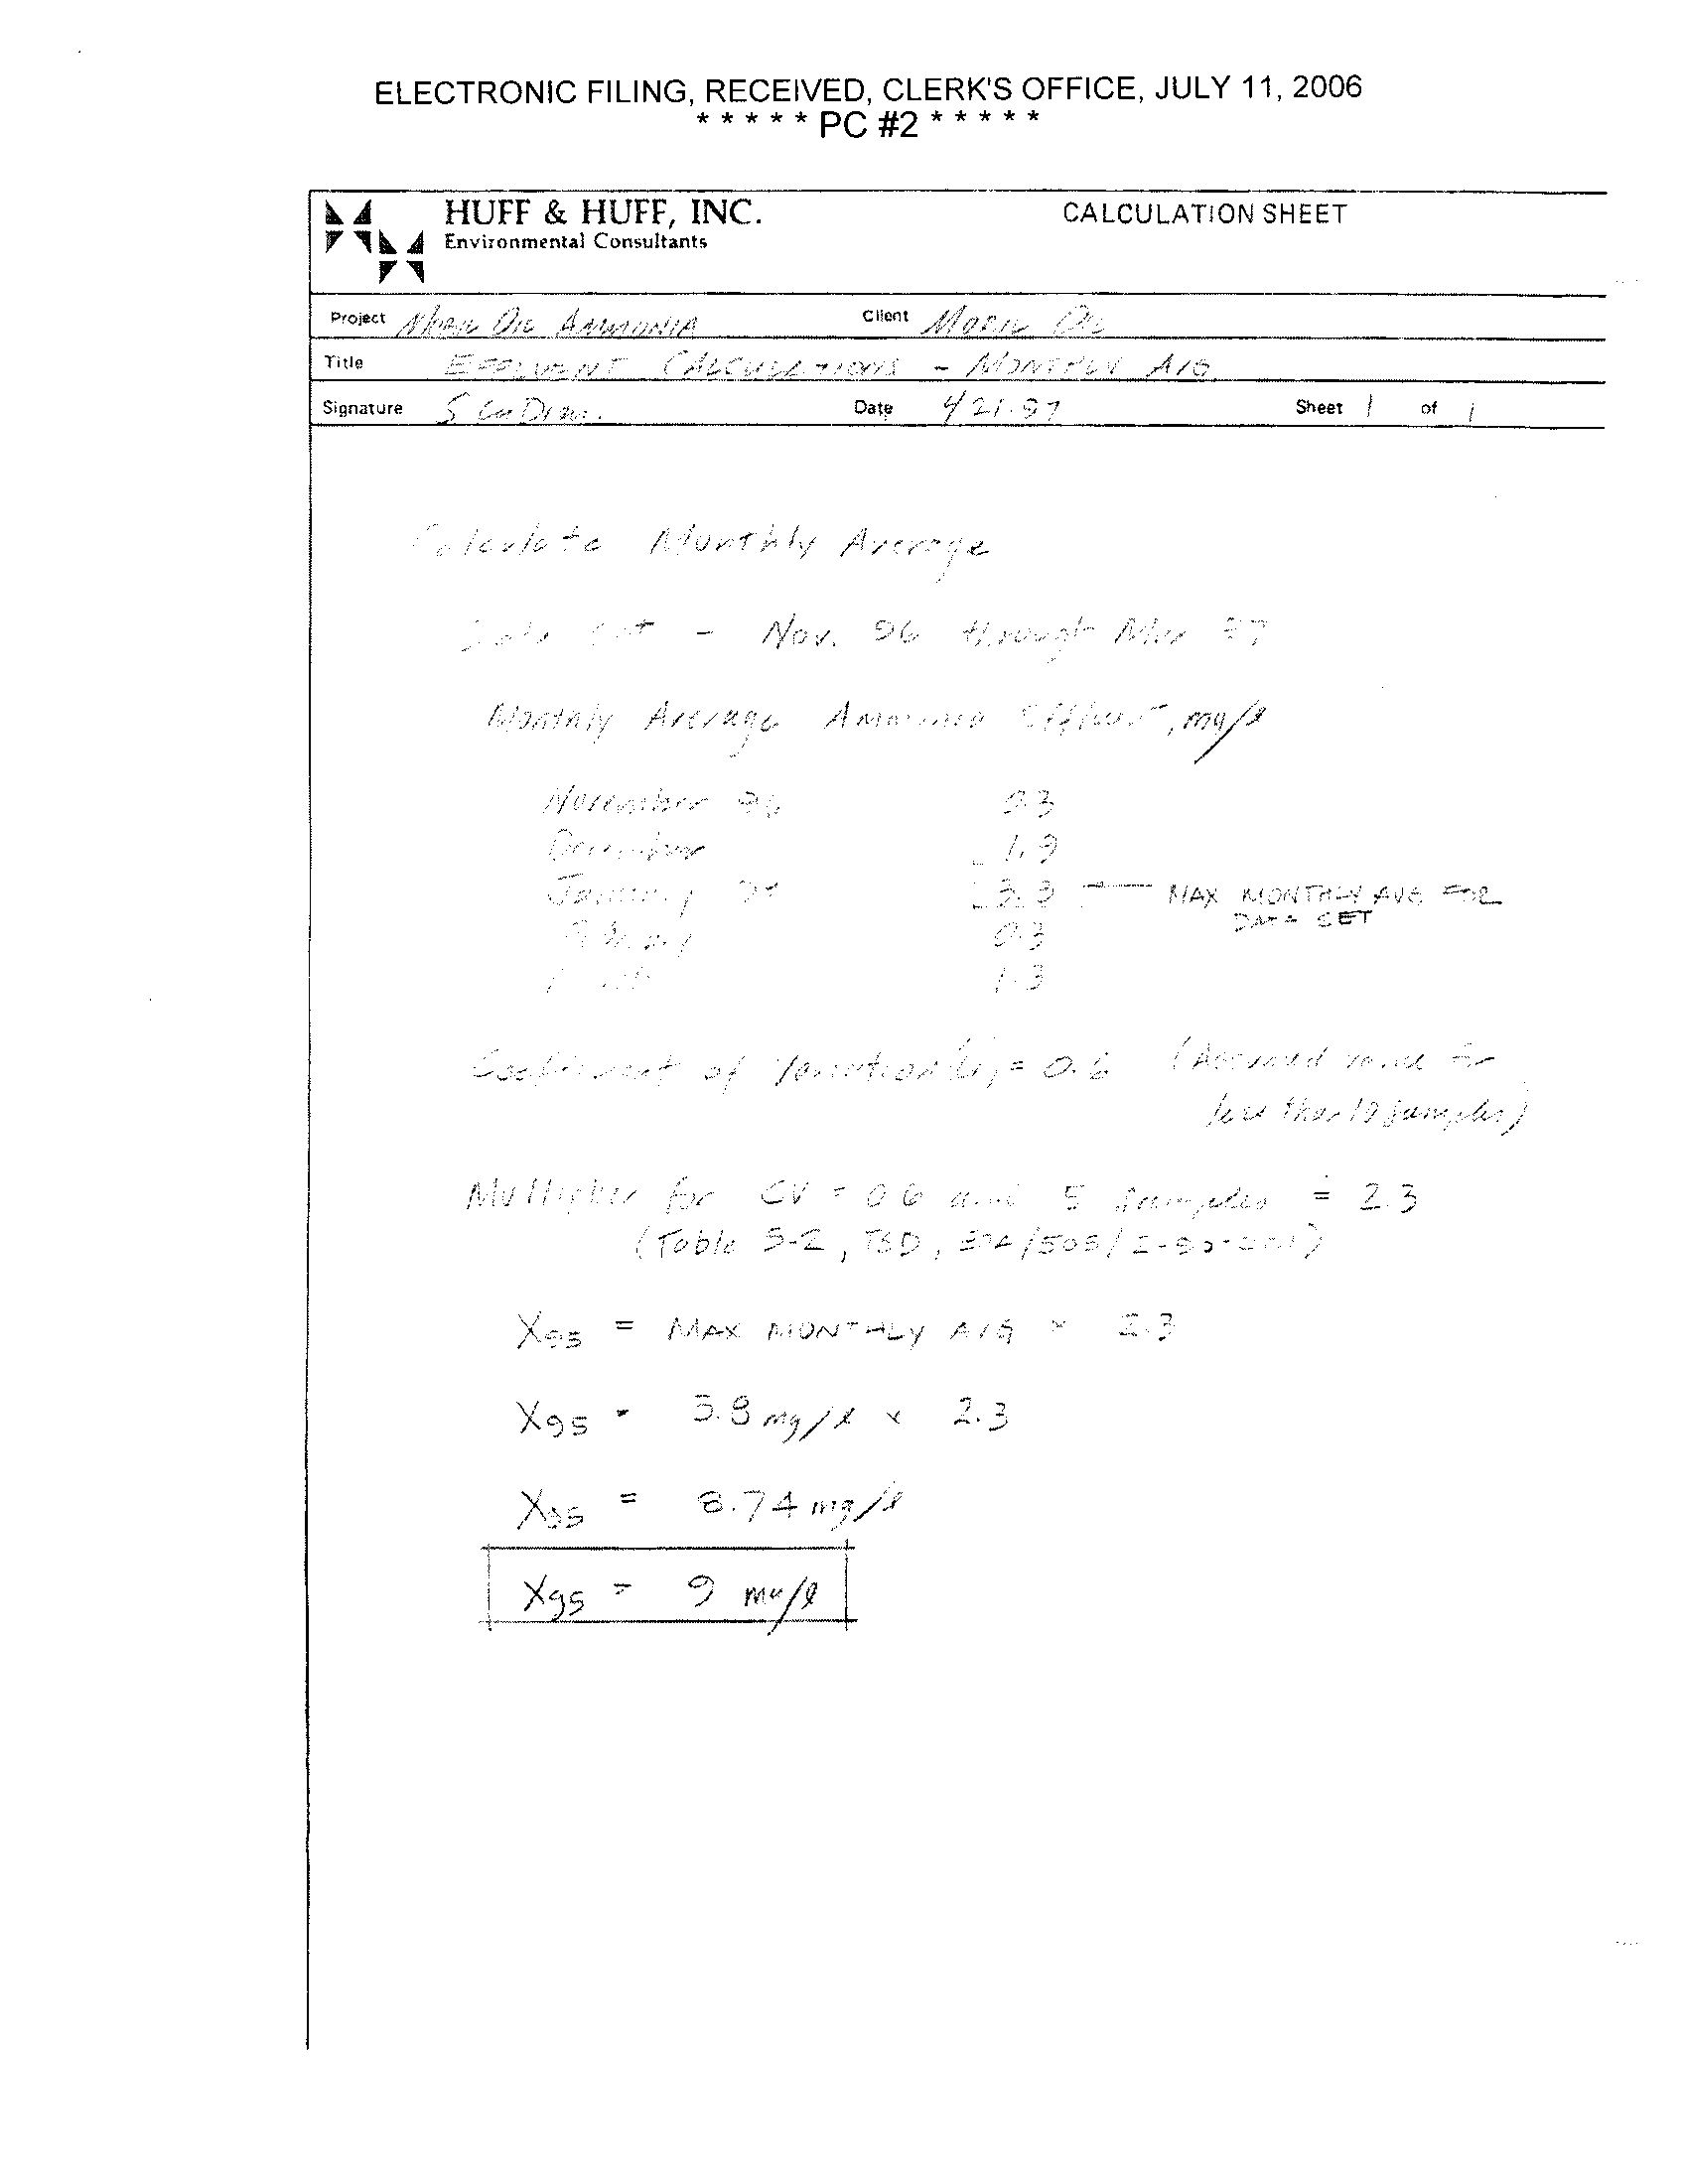 ELECTRONIC FILING, RECEIVED, CLERK'S OFFICE, JULY 11, 2006
* * * * * PC #2 * * * * *
HUFF & HUFF, INC.
CALCULATION SHEET
Environmental Consultants
Project Mobil Oil AMMONIA Client MOBIL OIL
Title EFFLUENT CALCULATIONS - MONTHLY AVG
Signature Date 4/21/97 Sheet 1 of 1
Calculate Monthly Average
Data Set - Nov. 96 through Mar 97
Monthly Average Ammonia Effluent, mg/l
November 96 0.3
December 1.9
January 97 MAX MONTHLY AVG FOR
DATA SET
February 0.3
March 1.3
Coefficient of Variation = 0.6 (Assumed value for
less than 10 samples)
Multiplier for CV = 0.6 and 5 samples = 2.3
(Table 5-2, TSD,
X95 = MAX MONTHLY AVG × 2.3
X95 = 3.8 mg/l × 2.3
X95 = 8.74 mg/l
X95 = 9 mg/l